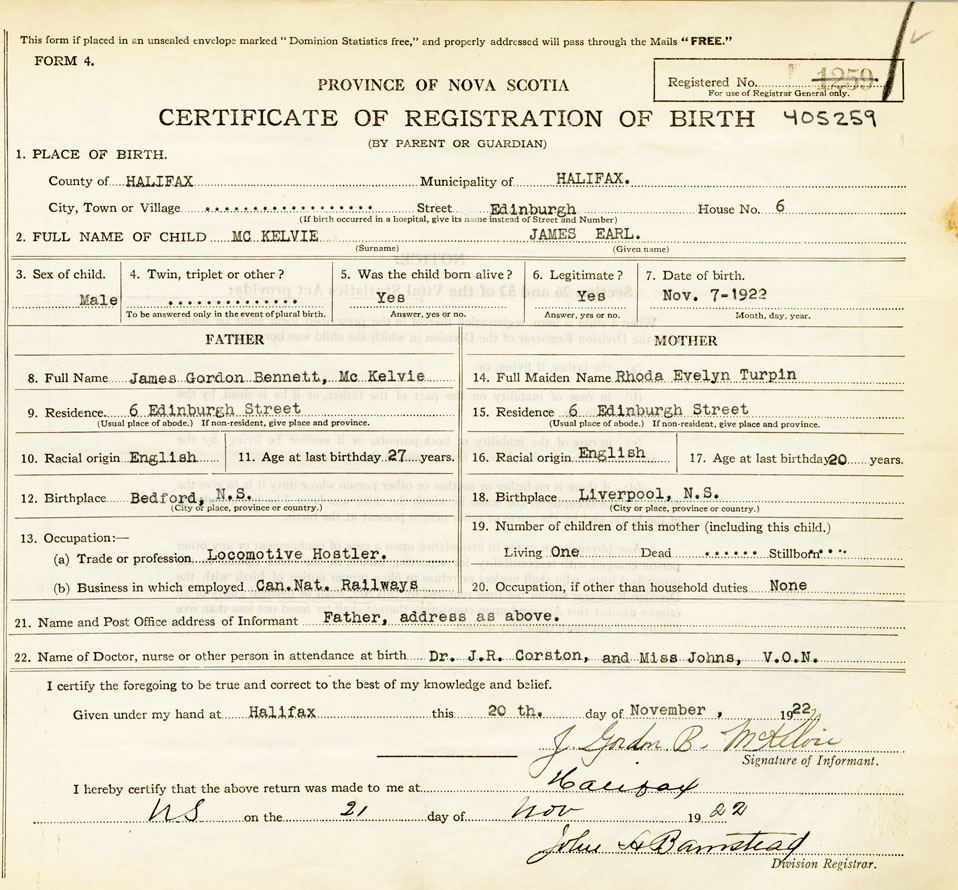 This form if placed in an unsealed envelope marked "Dominion Statistics free," and properly addressed will pass through the Mails "FREE."
FORM 4.
Registered No. 1259
For use of Registrar General only.
PROVINCE OF NOVA SCOTIA
CERTIFICATE OF REGISTRATION OF BIRTH 405259
(BY PARENT OR GUARDIAN)
1. PLACE OF BIRTH.
County of HALIFAX Municipality of HALIFAX.
City, Town or Village Street Edinburgh House No. 6
(If birth occurred in a hospital, give its name instead of Street and Number)
2. FULL NAME OF CHILD MC KELVIE JAMES EARL.
(Surname) (Given name)
3. Sex of child. 4. Twin, triplet or other? 5. Was the child born alive? 6. Legitimate? 7. Date of birth.
Male Yes Yes Nov. 7-1922
To be answered only in the event of plural birth. Answer, yes or no. Answer, yes or no. Month, day, year.
FATHER MOTHER
8. Full Name James Gordon Bennett, Mc Kelvie 14. Full Maiden Name Rhoda Evelyn Turpin
9. Residence. 6 Edinburgh Street 15. Residence 6 Edinburgh Street
(Usual place of abode.) If non-resident, give place and province. (Usual place of abode.) If non-resident, give place and province.
10. Racial origin English 11. Age at last birthday 27 years. 16. Racial origin English 17. Age at last birthday 20 years.
12. Birthplace Bedford, N.S. 18. Birthplace Liverpool, N.S.
(City or place, province or country.) (City or place, province or country.)
13. Occupation:— 19. Number of children of this mother (including this child.)
(a) Trade or profession Locomotive Hostler. Living One Dead Stillborn
(b) Business in which employed Can.Nat. Railways 20. Occupation, if other than household duties None
21. Name and Post Office address of Informant Father, address as above.
22. Name of Doctor, nurse or other person in attendance at birth Dr. J.R. Corston, and Miss Johns, V.O.N.
I certify the foregoing to be true and correct to the best of my knowledge and belief.
Given under my hand at Halifax this 20 th. day of November , 1922
J Gordon B. McKelvie
Signature of Informant.
I hereby certify that the above return was made to me at Halifax
NS on the 21 day of Nov 1922
John A Barnstead
Division Registrar.